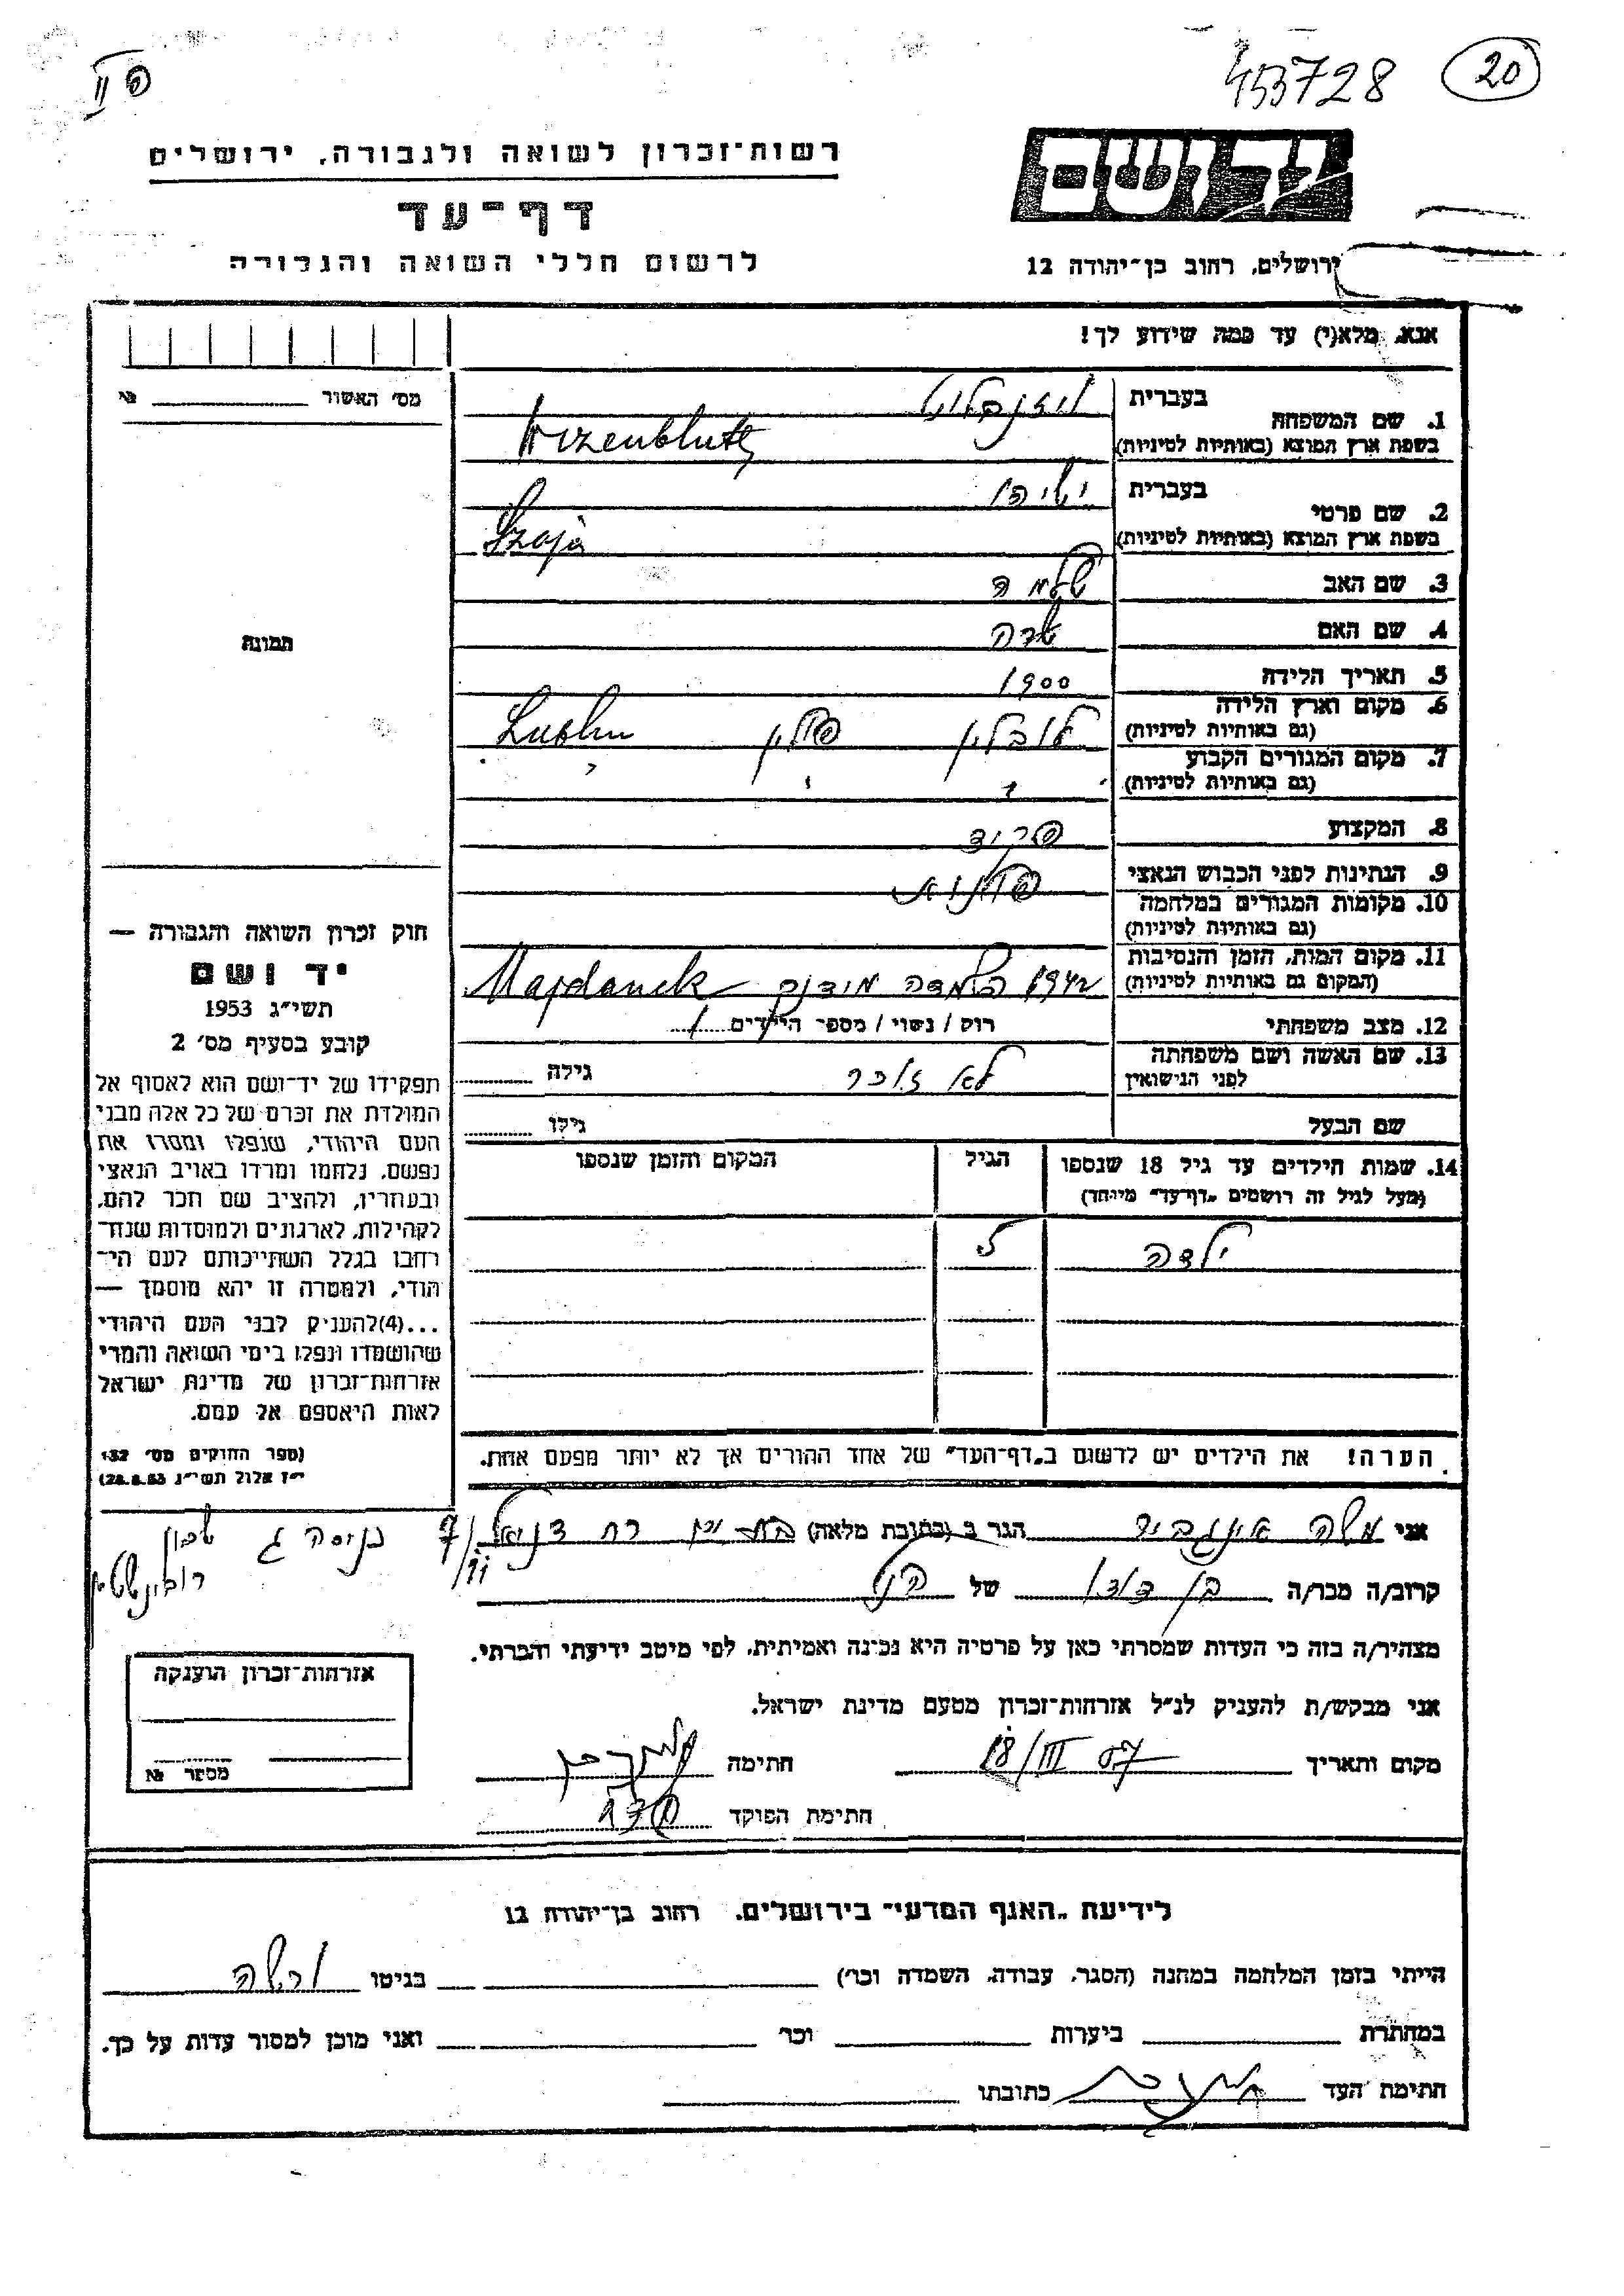 פ II
453728
20
רשות־זכרון לשואה ולגבורה, ירושלים
יד ושם
דף־עד
לרשום חללי השואה והגבורה
ירושלים, רחוב בן־יהודה 12
אנא, מלא(י) עד כמה שידוע לך!
מס׳ האשור №
1. שם המשפחה בעברית
בשפת ארץ המוצא (באותיות לטיניות)
2. שם פרטי בעברית ישעיהו
בשפת ארץ המוצא (באותיות לטיניות) Szaja
3. שם האב שלמה
4. שם האם שרה
5. תאריך הלידה 1900
6. מקום וארץ הלידה (גם באותיות לטיניות) לובלין פולין Lublin
7. מקום המגורים הקבוע (גם באותיות לטיניות) " " "
8. המקצוע פקיד
9. הנתינות לפני הכבוש הנאצי פולנית
10. מקומות המגורים במלחמה (גם באותיות לטיניות)
11. מקום המות, הזמן והנסיבות (המקום גם באותיות לטיניות) 1942 השמדה מידנק Majdanek
12. מצב משפחתי רוק / נשוי / מספר הילדים 1
13. שם האשה ושם משפחתה לפני הנישואין לא זוכר גילה
שם הבעל גילו
14. שמות הילדים עד גיל 18 שנספו (מעל לגיל זה רושמים „דף־עד" מיוחד) הגיל המקום והזמן שנספו
ילדה
הערה! את הילדים יש לרשום ב„דף־העד" של אחד ההורים אך לא יותר מפעם אחת.
תמונה
חוק זכרון השואה והגבורה —
יד ושם
תשי״ג 1953
קובע בסעיף מס׳ 2
תפקידו של יד־ושם הוא לאסוף אל
המולדת את זכרם של כל אלה מבני
העם היהודי, שנפלו ומסרו את
נפשם, נלחמו ומרדו באויב הנאצי
ובעוזריו, ולהציב שם וזכר להם,
לקהילות, לארגונים ולמוסדות שנח־
רבו בגלל השתייכותם לעם הי־
הודי, ולמטרה זו יהא מוסמך —
...(4)להעניק לבני העם היהודי
שהושמדו ונפלו בימי השואה והמרי
אזרחות־זכרון של מדינת ישראל
לאות היאספם אל עמם.
(ספר החוקים מס׳ 132
י״ז אלול תשי״ג 28.8.53)
אני משה הגר ב (כתובת מלאה) בת ים רח דניאל 7/11 כניסה ג שכון רובינשטיין
קרוב/ה מכר/ה בן דודו של הנ״ל
מצהיר/ה בזה כי העדות שמסרתי כאן על פרטיה היא נכונה ואמיתית, לפי מיטב ידיעתי והכרתי.
אני מבקש/ת להעניק לנ״ל אזרחות־זכרון מטעם מדינת ישראל.
מקום ותאריך 18/III 57 חתימה
חתימת הפוקד
אזרחות־זכרון הוענקה
מספר №
לידיעת „האגף המדעי" בירושלים, רחוב בן־יהודה 12
הייתי בזמן המלחמה במחנה (הסגר, עבודה, השמדה וכו׳) בגיטו ורשה
במחתרת ביערות וכו׳ ואני מוכן למסור עדות על כך.
חתימת העד כתובתו